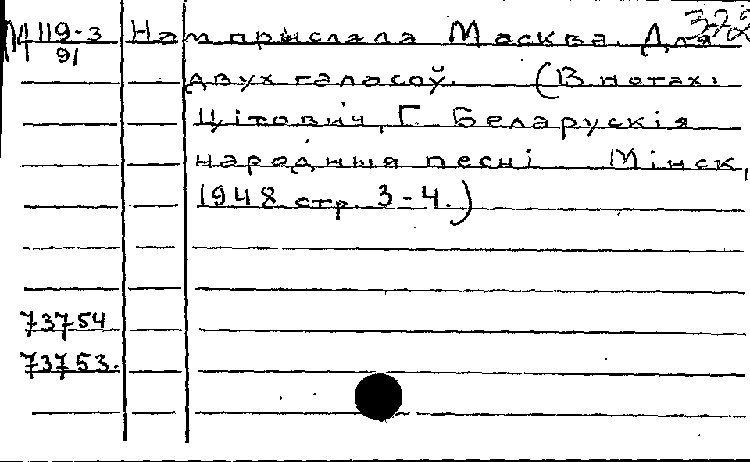 М 119-3 Нам прыслала Масква. Для
91
328
двух галасоў. (В нотах:
Цітовіч, Г. Беларускія
народныя песні Мінск,
1948 стр. 3-4.)
73754
73753.